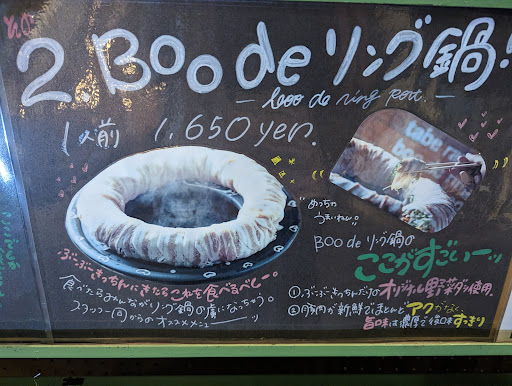 2. Boo de リング鍋!
— boo de ring pot. —
1人前 1,650 yen.
めっちゃ
うまいねん。
Boo de リング鍋の
ここがすごいーッ
ぶぶきっちんにきたらこれを食べるべしー。
食べたらみんながリング鍋の虜になっちゃう。
スタッフ一同からのオススメメニューーッ
①ぶぶきっちんだけのオリジナル野菜ダシ使用
②豚肉が新鮮でほとんどアクがなく、
旨味は濃厚で後味すっきり